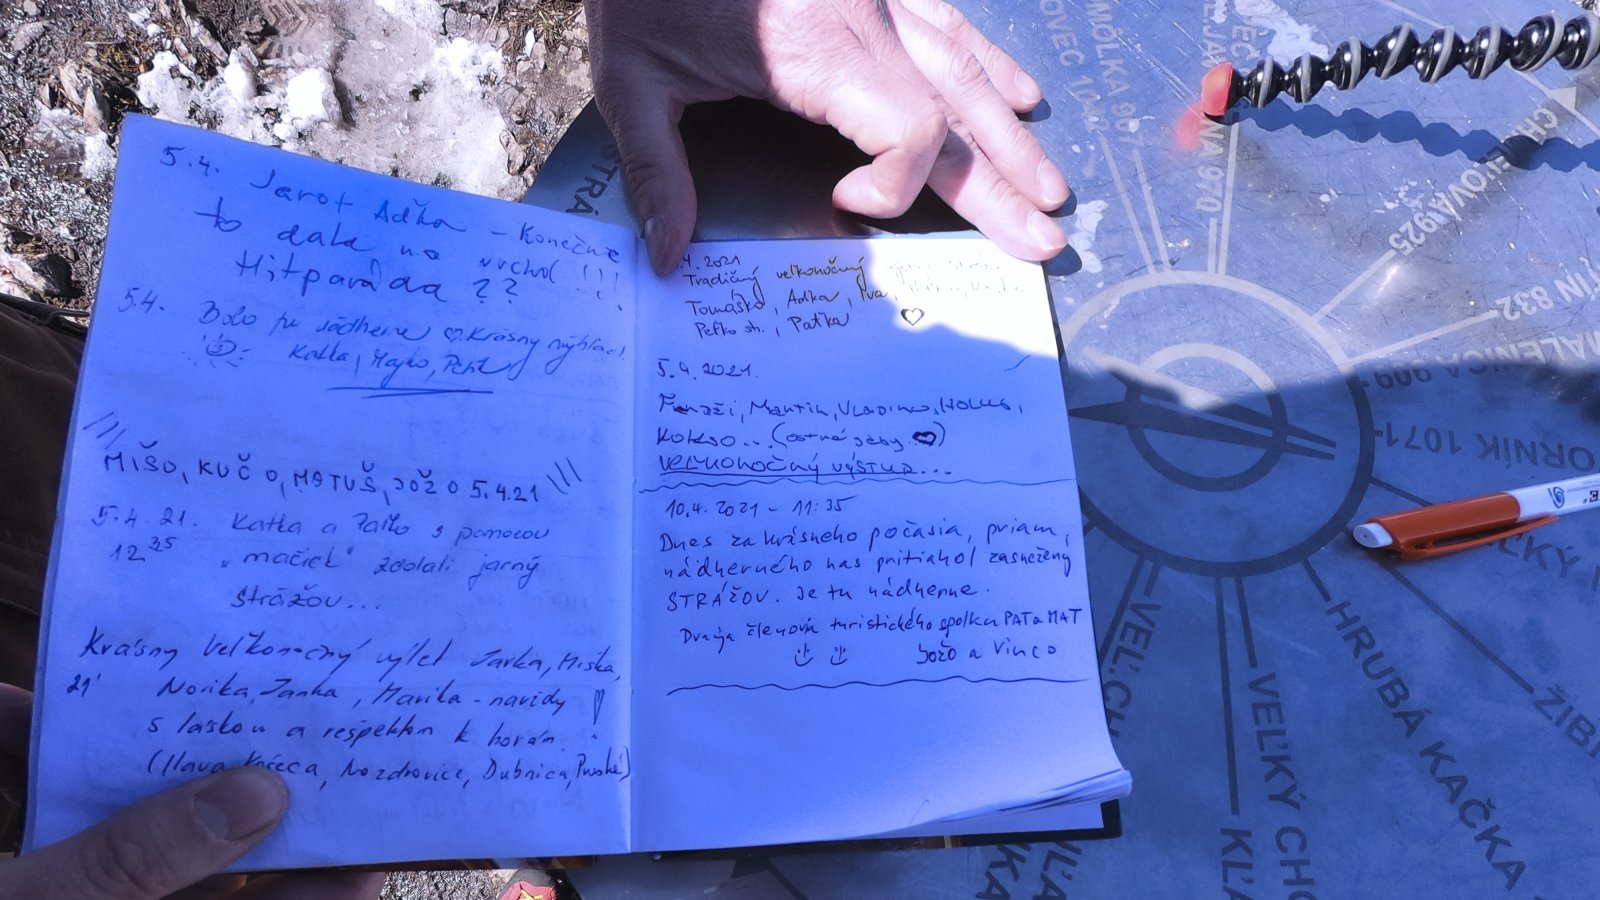 5.4. Jarot Aďka - Konečne
to dala na vrchol !!!
Hitparáda ??
5.4. Bolo tu nádherne Krásny výhľad
Katka, Majko, Peťk
MIŠO, KUČO, MATUŠ, JOŽO 5.4.21
5.4.21. Katka a Paľko s pomocou
12 35 "mačiek" zdolali jarný
Strážov...
Krásny Veľkonočný výlet Jarka, Miška,
21' Norika, Janka, Marika - navždy
s láskou a rešpektom k horám.
(Ilava, Košeca, Nozdrovice, Dubnica, Pruské)
.4.2021
Tradičný veľkonočný
Tomáško, Adka, Iva,
Peťko st., Paťka
5.4.2021.
Martin, Vladino, HOLUB,
KOKSO... (ostré
VEĽKONOČNÝ VÝSTUP...
10.4.2021 - 11:35
Dnes za krásneho počasia, priam,
nádherného nas pritiahol zasnežený
STRÁŽOV. Je tu nádherne.
Dvaja členovia turistického spolku PAT a MAT
Jožo a Vinco
STRÁ
OVEC
MÔLKA 90
NA 970
CHVEĽOVA 925
TÍN 832
MALENICA 909
ORNÍK 1071
VEĽKÝ
ŽIBR
HRUBÁ KAČKA
VEĽKÝ CHO
VEĽ. CH
KĽA